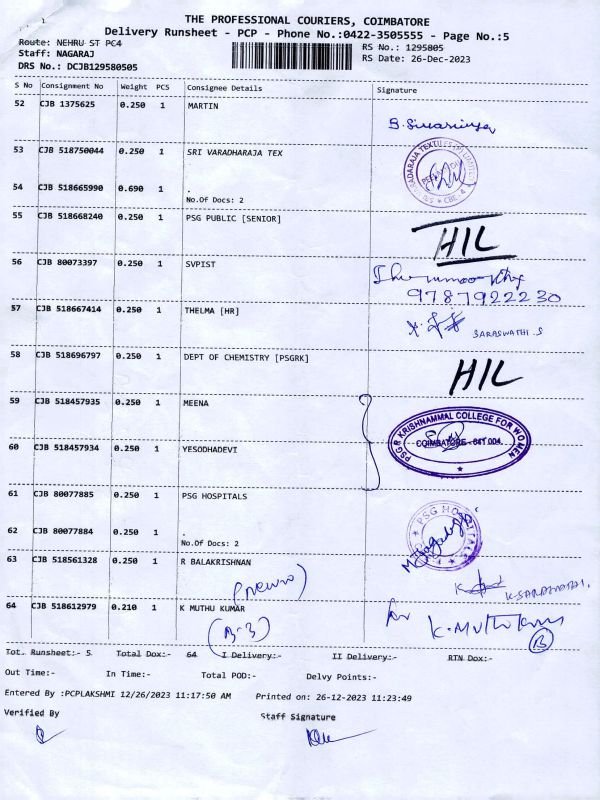 THE PROFESSIONAL COURIERS, COIMBATORE
Delivery Runsheet - PCP - Phone No.:0422-3505555 - Page No.:5
Route: NEHRU ST PC4
RS No.: 1295805
Staff: NAGARAJ
RS Date: 26-Dec-2023
DRS No.: DCJB129580505
S No Consignment No Weight PCS Consignee Details Signature
52 CJB 1375625 0.250 1 MARTIN
53 CJB 518750044 0.250 1 SRI VARADHARAJA TEX
54 CJB 518665990 0.690 1 .
No.Of Docs: 2
55 CJB 518668240 0.250 1 PSG PUBLIC [SENIOR]
HIL
56 CJB 80073397 0.250 1 SVPIST
9787922230
57 CJB 518667414 0.250 1 THELMA [HR]
SARASWATHI.S
58 CJB 518696797 0.250 1 DEPT OF CHEMISTRY [PSGRK]
HIL
59 CJB 518457935 0.250 1 MEENA
PSGR KRISHNAMMAL COLLEGE FOR WOMEN
COIMBATORE - 641 004.
60 CJB 518457934 0.250 1 YESODHADEVI
61 CJB 80077885 0.250 1 PSG HOSPITALS
PSG HOSPITALS
62 CJB 80077884 0.250 1 .
No.Of Docs: 2
63 CJB 518561328 0.250 1 R BALAKRISHNAN
(neuro)
64 CJB 518612979 0.210 1 K MUTHU KUMAR
(B-3)
for K.Muthu Kumar
B
Tot. Runsheet:- 5 Total Dox:- 64 I Delivery:- II Delivery:- RTN Dox:-
Out Time:- In Time:- Total POD:- Delvy Points:-
Entered By :PCPLAKSHMI 12/26/2023 11:17:50 AM Printed on: 26-12-2023 11:23:49
Verified By Staff Signature